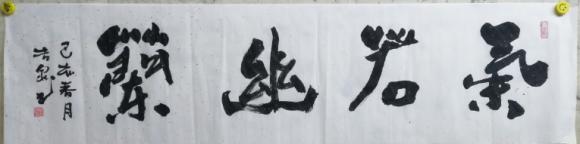 氣若幽蘭
己亥春月